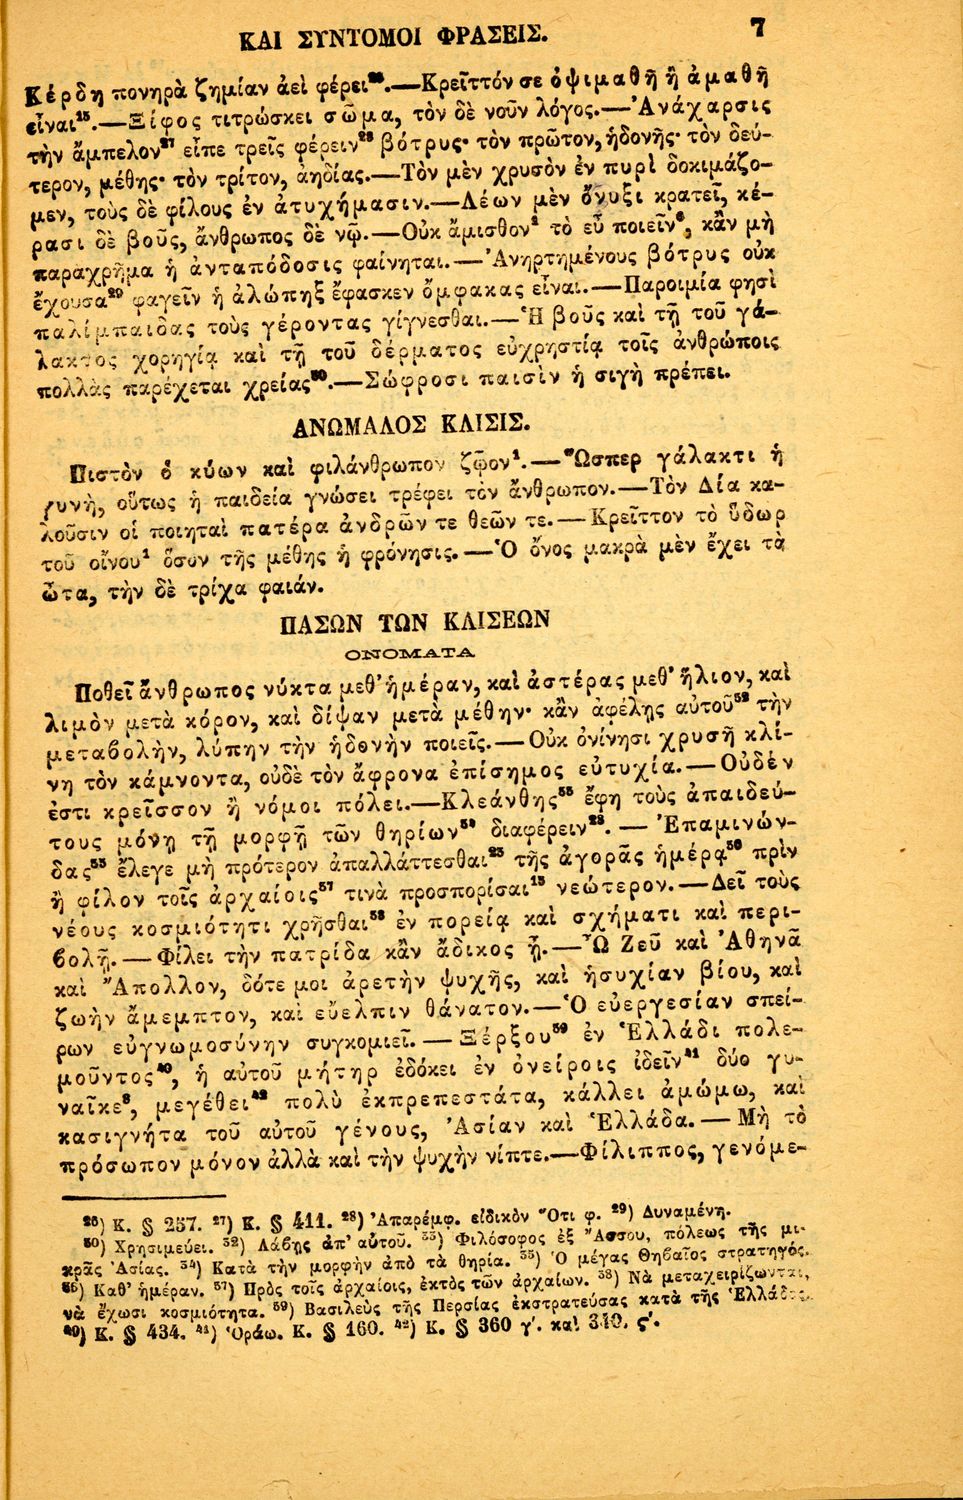 ΚΑΙ ΣΥΝΤΟΜΟΙ ΦΡΑΣΕΙΣ. 7
Κέρδη πονηρὰ ζημίαν ἀεὶ φέρει²⁶.—Κρεῖττόν σε ὀψιμαθῆ ἢ ἀμαθῆ
εἶναι¹⁵.—Ξίφος τιτρώσκει σῶμα, τὸν δὲ νοῦν λόγος.—Ἀνάχαρσις
τὴν ἄμπελον²⁷ εἶπε τρεῖς φέρειν²⁸ βότρυς· τὸν πρῶτον, ἡδονῆς· τὸν δεύ-
τερον, μέθης· τὸν τρίτον, ἀηδίας.—Τὸν μὲν χρυσὸν ἐν πυρὶ δοκιμάζο-
μεν, τοὺς δὲ φίλους ἐν ἀτυχήμασιν.—Λέων μὲν ὄνυξι κρατεῖ, κέ-
ρασι δὲ βοῦς, ἄνθρωπος δὲ νῷ.—Οὐκ ἄμισθον² τὸ εὖ ποιεῖν⁶, κἂν μὴ
παραχρῆμα ἡ ἀνταπόδοσις φαίνηται.—Ἀνηρτημένους βότρυς οὐκ
ἔχουσα²⁹ φαγεῖν ἡ ἀλώπηξ ἔφασκεν ὄμφακας εἶναι.—Παροιμία φησὶ
παλίμπαιδας τοὺς γέροντας γίγνεσθαι.—Ἡ βοῦς καὶ τῇ τοῦ γά-
λακτος χορηγίᾳ καὶ τῇ τοῦ δέρματος εὐχρηστίᾳ τοῖς ἀνθρώποις
πολλὰς παρέχεται χρείας³⁰.—Σώφροσι παισὶν ἡ σιγὴ πρέπει.
ΑΝΩΜΑΛΟΣ ΚΛΙΣΙΣ.
Πιστὸν ὁ κύων καὶ φιλάνθρωπον ζῷον¹.—Ὥσπερ γάλακτι ἡ
γυνὴ, οὕτως ἡ παιδεία γνώσει τρέφει τὸν ἄνθρωπον.—Τὸν Δία κα-
λοῦσιν οἱ ποιηταὶ πατέρα ἀνδρῶν τε θεῶν τε.—Κρεῖττον τὸ ὕδωρ
τοῦ οἴνου¹ ὅσον τῆς μέθης ἡ φρόνησις.—Ὁ ὄνος μακρὰ μὲν ἔχει τὰ
ὦτα, τὴν δὲ τρίχα φαιάν.
ΠΑΣΩΝ ΤΩΝ ΚΛΙΣΕΩΝ
ΟΝΟΜΑΤΑ
Ποθεῖ ἄνθρωπος νύκτα μεθ' ἡμέραν, καὶ ἀστέρας μεθ' ἥλιον, καὶ
λιμὸν μετὰ κόρον, καὶ δίψαν μετὰ μέθην· κἂν ἀφέλῃς αὐτοῦ³² τὴν
μεταβολὴν, λύπην τὴν ἡδονὴν ποιεῖς.—Οὐκ ὀνίνησι χρυσῆ κλί-
νη τὸν κάμνοντα, οὐδὲ τὸν ἄφρονα ἐπίσημος εὐτυχία.—Οὐδέν
ἐστι κρεῖσσον ἢ νόμοι πόλει.—Κλεάνθης³³ ἔφη τοὺς ἀπαιδεύ-
τους μόνῃ τῇ μορφῇ τῶν θηρίων³⁴ διαφέρειν²⁸.—Ἐπαμινών-
δας³⁵ ἔλεγε μὴ πρότερον ἀπαλλάττεσθαι²³ τῆς ἀγορᾶς ἡμέρᾳ³⁶ πρὶν
ἢ φίλον τοῖς ἀρχαίοις³⁷ τινὰ προσπορίσαι¹⁵ νεώτερον.—Δεῖ τοὺς
νέους κοσμιότητι χρῆσθαι³⁸ ἐν πορείᾳ καὶ σχήματι καὶ περι-
βολῇ.—Φίλει τὴν πατρίδα κἂν ἄδικος ᾖ.—Ὦ Ζεῦ καὶ Ἀθηνᾶ
καὶ Ἄπολλον, δότε μοι ἀρετὴν ψυχῆς, καὶ ἡσυχίαν βίου, καὶ
ζωὴν ἄμεμπτον, καὶ εὔελπιν θάνατον.—Ὁ εὐεργεσίαν σπεί-
ρων εὐγνωμοσύνην συγκομιεῖ.—Ξέρξου³⁹ ἐν Ἑλλάδι πολε-
μοῦντος⁴⁰, ἡ αὐτοῦ μήτηρ ἐδόκει ἐν ὀνείροις ἰδεῖν⁴¹ δύο γυ-
ναῖκε⁸, μεγέθει⁴² πολὺ ἐκπρεπεστάτα, κάλλει ἀμώμω, καὶ
κασιγνήτα τοῦ αὐτοῦ γένους, Ἀσίαν καὶ Ἑλλάδα.—Μὴ τὸ
πρόσωπον μόνον ἀλλὰ καὶ τὴν ψυχὴν νίπτε.—Φίλιππος, γενόμε-
²⁶) Κ. § 257. ²⁷) Κ. § 411. ²⁸) Ἀπαρέμφ. εἰδικὸν Ὅτι φ. ²⁹) Δυναμένη.
³⁰) Χρησιμεύει. ³²) Λάβῃς ἀπ' αὐτοῦ. ³³) Φιλόσοφος ἐξ Ἄσσου, πόλεως τῆς μι-
κρᾶς Ἀσίας. ³⁴) Κατὰ τὴν μορφὴν ἀπὸ τὰ θηρία. ³⁵) Ὁ μέγας Θηβαῖος στρατηγός.
³⁶) Καθ' ἡμέραν. ³⁷) Πρὸς τοῖς ἀρχαίοις, ἐκτὸς τῶν ἀρχαίων. ³⁸) Νὰ μεταχειρίζωνται,
νὰ ἔχωσι κοσμιότητα. ³⁹) Βασιλεὺς τῆς Περσίας ἐκστρατεύσας κατὰ τῆς Ἑλλάδος.
⁴⁰) Κ. § 434. ⁴¹) Ὁράω. Κ. § 160. ⁴²) Κ. § 360 γ'. καὶ 340. ς'.